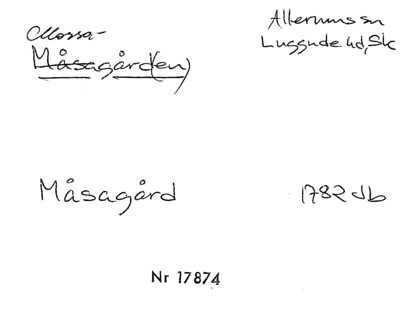 Mossa-
Måsagård(en)
Allerums sn
Luggude hd, Sk
Måsagård 1782 Jb
Nr 17874